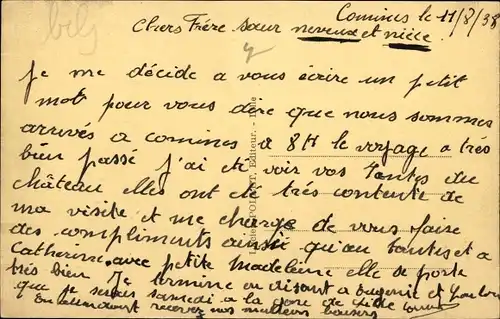 belg
Comines le 11/8/38
Chers Frère sœur neveux et nièce
je me décide a vous écrire un petit
mot pour vous dire que nous sommes
arrivés a comines a 8H le voyage a très
bien passé j'ai été voir vos Tantes du
château elles ont été très contente de
ma visite et me charge de vous faire
des compliments aussi qu'au tantes et a
Catherine avec petite Madeleine elle se porte
très bien Je termine en disant a Eugenie et
que je serais samedi a la gare de Lille
En attendant recevez nos meilleurs baisers
Editeur.